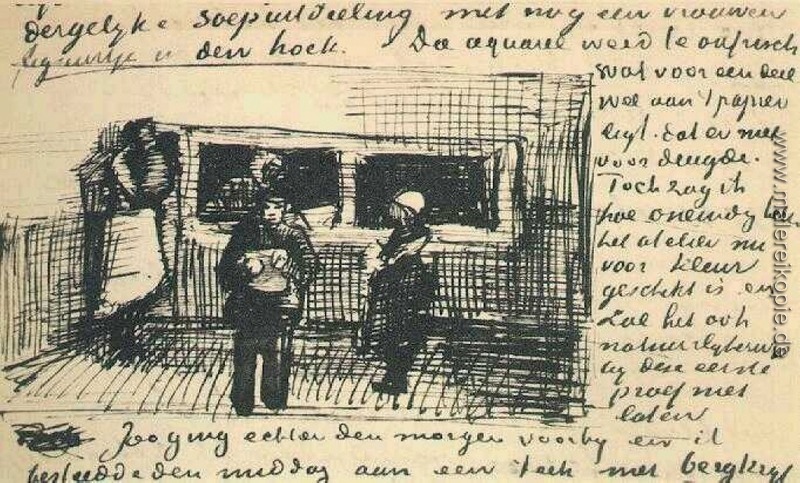 dergelyke soepuitdeeling met nog een vrouwen
figuurtje in den hoek. De aquarel werd te onfrisch
wat voor een deel
wel aan 't papier
ligt. dat er niet
voor deugde.
Toch zag ik
hoe oneindig
het atelier nu
voor kleur
geschikt is en
zal het ook
natuurlyk
by deze eerste
proef niet
laten
Zoo ging echter den morgen voorby en ik
besteedde den middag aan een teek met bergkryt
www.malereikopie.de